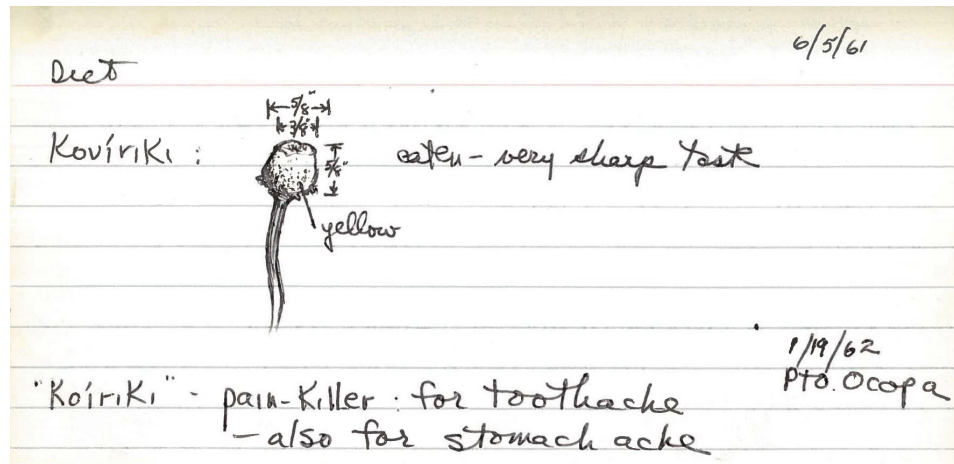 6/5/61
Diet
5/8"
3/8"
Kovíriki : 5/8" eaten - very sharp taste
yellow
1/19/62
Pto. Ocopa
"Koíriki" - pain-killer : for toothache
- also for stomach ache